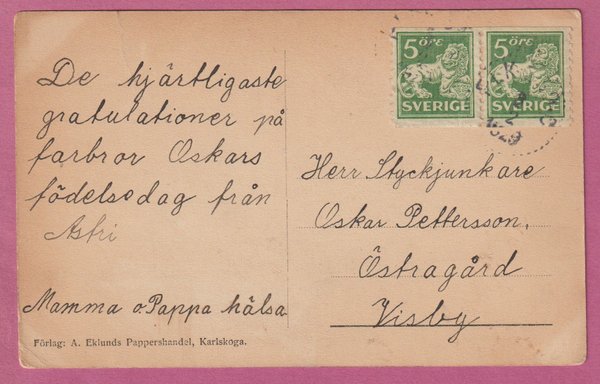 De hjärtligaste
gratulationer på
farbror Oskars
födelsedag från
Astri
Mamma o Pappa hälsa
Förlag: A. Eklunds Pappershandel, Karlskoga.
5 ÖRE
SVERIGE
5 ÖRE
SVERIGE
Herr Styckjunkare
Oskar Pettersson,
Östragård
Visby